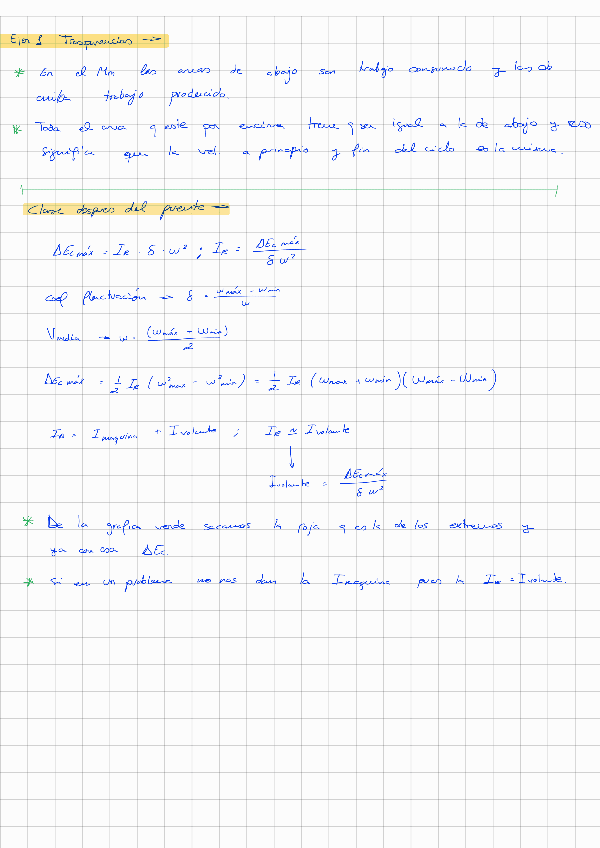 Ejer 1 Trasparencias →
* En el Mn las areas de abajo son trabajo consumido y las de
arriba trabajo producido.
* Toda el area q este por encima tiene q ser igual a la de abajo y eso
significa que la vel. a principio y fin del ciclo es la misma.
Clase despues del puente →
ΔEc máx = I_R · δ · w² ; I_R = ΔEc máx / δ w²
coef fluctuación → δ = (wmáx - wmin) / w
Vmedia → w = (wmáx - wmin) / 2
ΔEc máx = 1/2 I_R (w²max - w²min) = 1/2 I_R (wmax + wmin)(wmáx - wmin)
I_R = Imaquina + Ivolante ; I_R ≃ Ivolante
↓
Ivolante = ΔEc máx / δ w²
* De la grafica verde sacamos la roja q es la de los extremos y
ya con esa ΔEc.
* Si en un problema no nos dan la Imaquina pues la I_R = Ivolante.